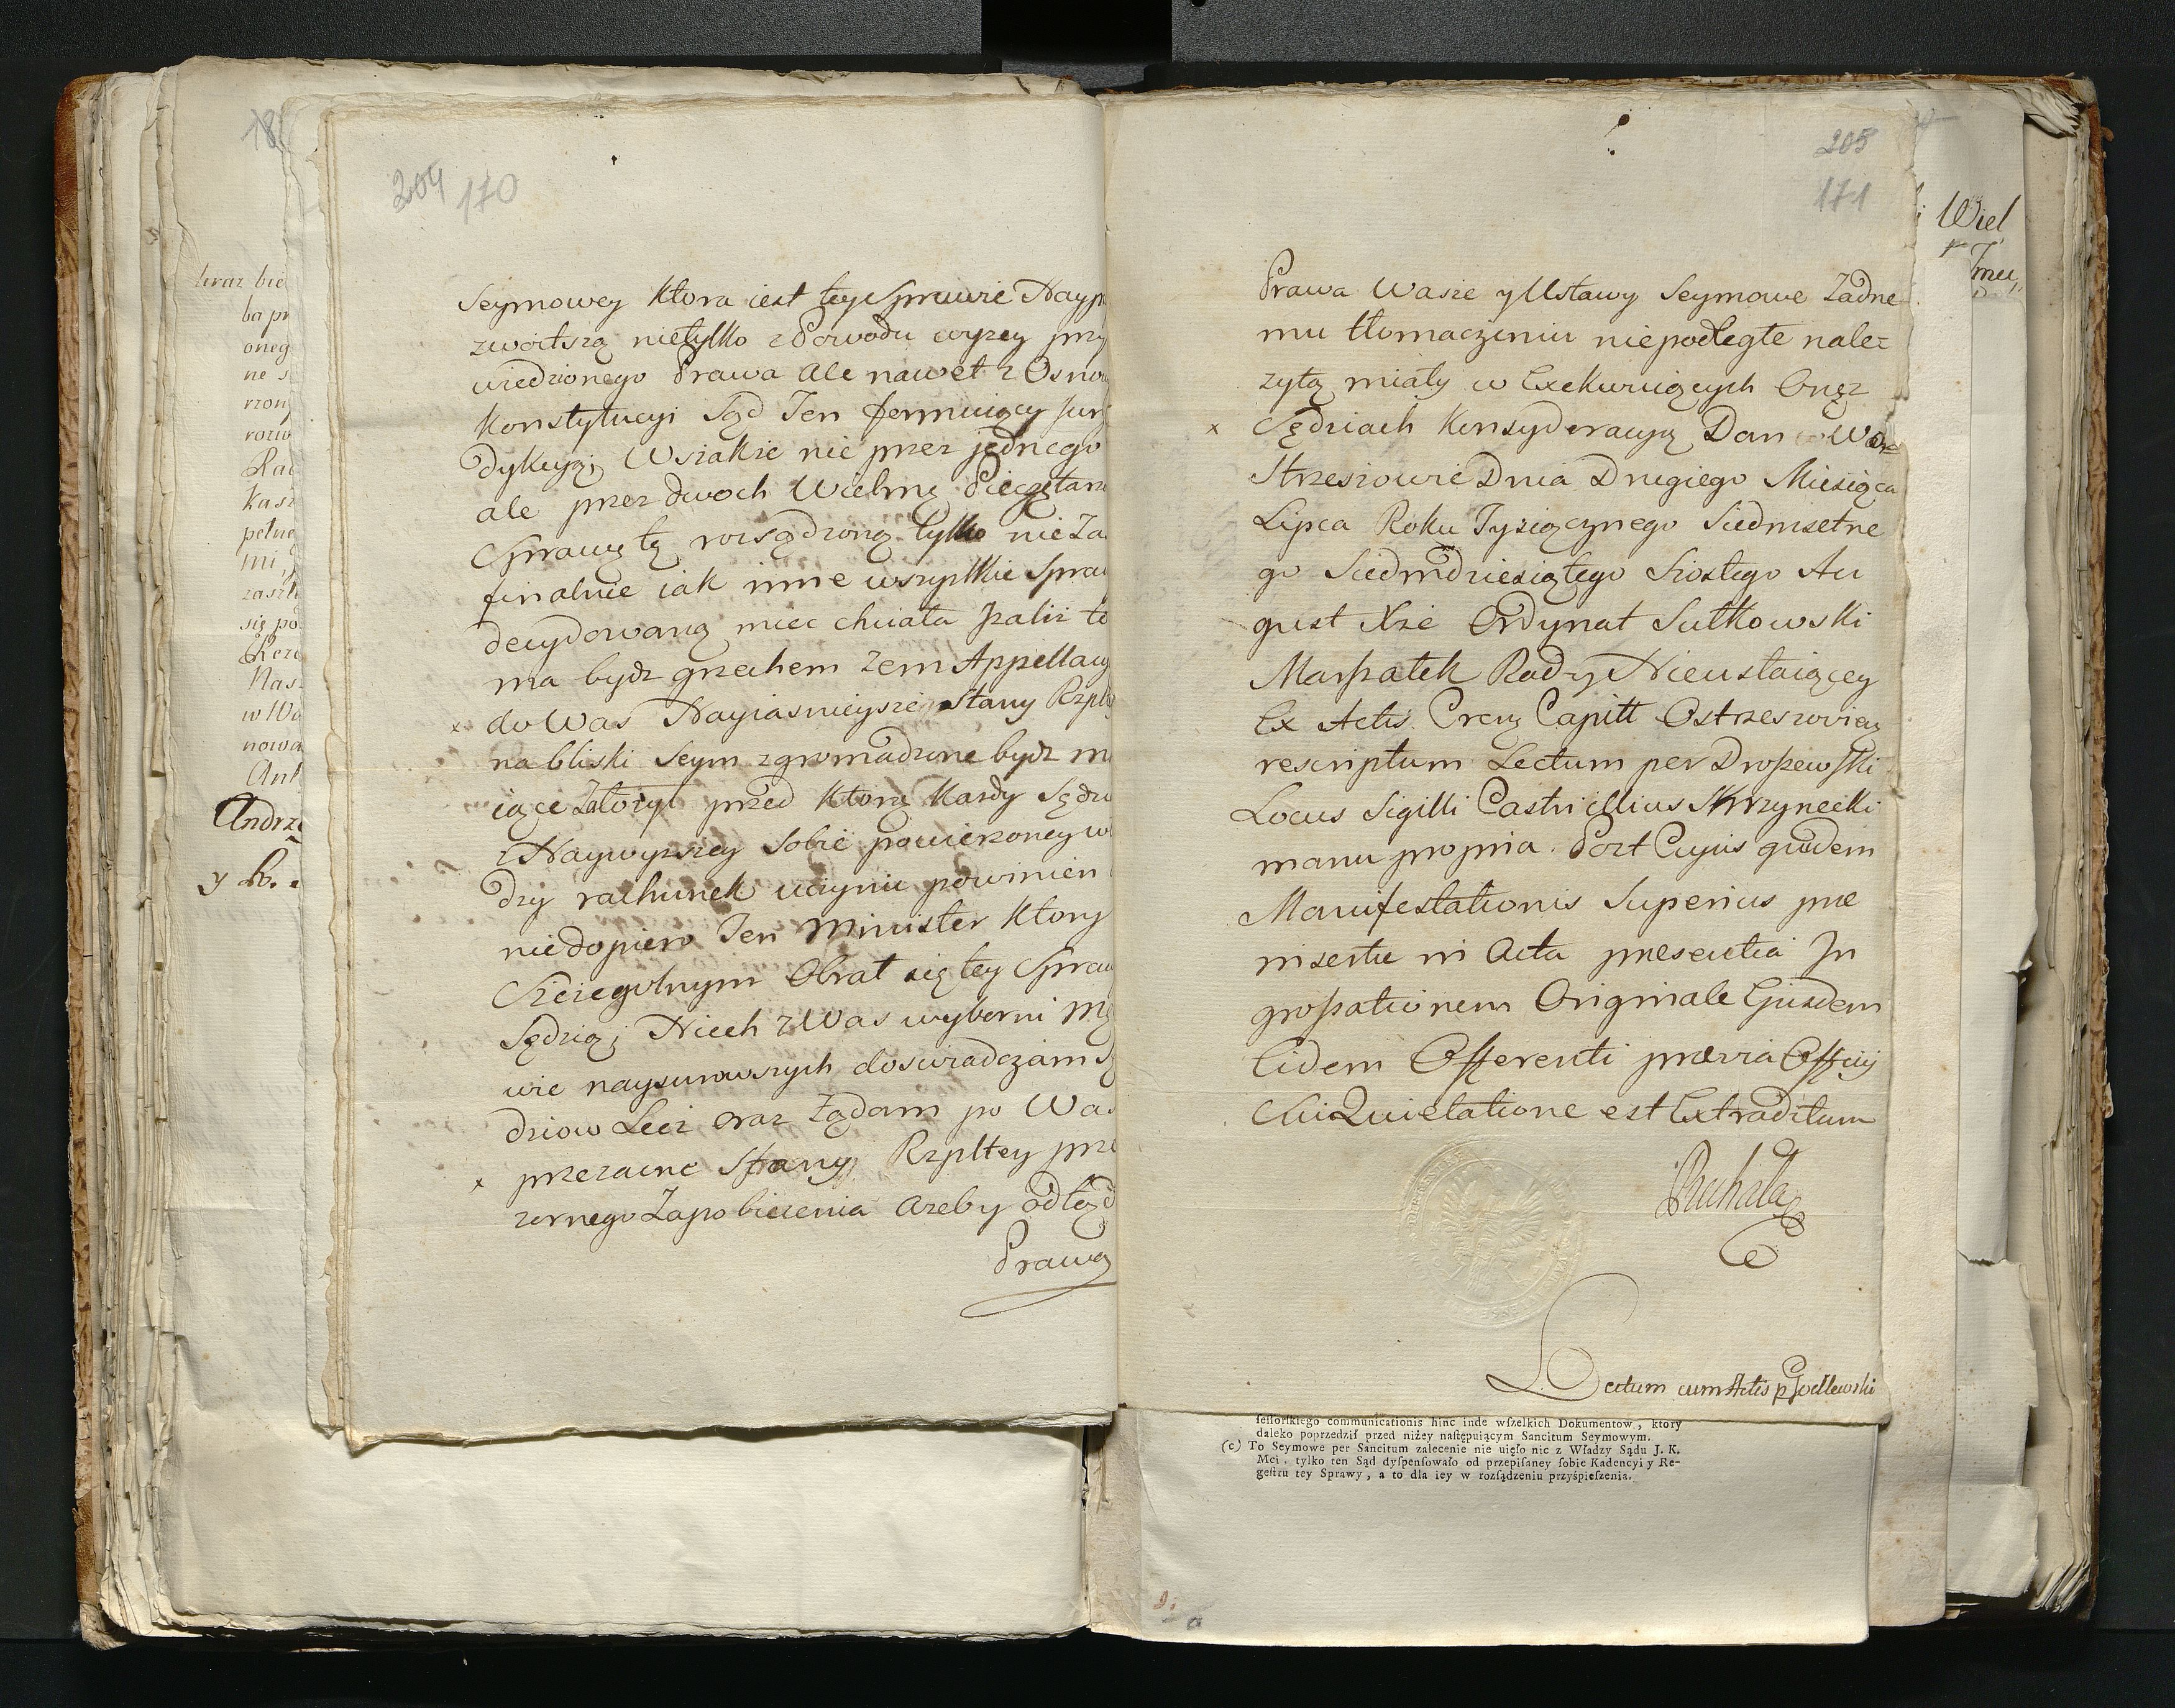 18
teraz bie
ba pr
oneg
ne s
rzon
rozu
Rad
kasz
pełne
mi,
zaszł
się po
Rze
Nas
w Wa
nowa
Ant
Andrze
y Lo.
204 170
Seymowey Ktora iest tey Sprawie Nayp
zwoitszą nietylko z Powodu wyzey przy
wiedzionego Prawa Ale nawet z Osnow
Konstytucyi Sąd Ten formuiący Jurs
dykcyą; Wszakże nie przez jednego
ale przez dwoch Wielmę Pieczętarz
Sprawę tę rozsądzoną tylko nie Za
finalnie iak inne wszystkie Spraw
decydowaną miec chciała Jzaliż to
ma bydz grzechem zem Appellacyę
x do Was Nayiasnieysze Stany Rzplty
na bliski Seym zgromadzone bydz m
iące Założył przed Ktorą Kazdy Sędzi
z Naywyzszey Sobie powierzoney w
dzy rachunek uczynic powinien
niedopiero Ten Minister Ktory
Szczegulnym Obrał się tey Spraw
Sędzią; Niech z Was wyborni Mę
wie naysurowszych doswiadczam S
dziow Lecz oraz Żądam po Was
x przezacne Stany Rzpltey prze
zornego Zapobieżenia Azeby odtąd
Prawa
205
171
Prawa Wasze y Ustawy Seymowe Zadne
mu tłomaczeniu niepodległe nale=
zytą miały w Exekwuiących Onęż
x Sędziach Konsyderacyą Dan w Wo
Strzeszowie Dnia Drugiego Miesiąca
Lipca Roku Tysiącznego Siedmsetne
go Siedmdziesiątego Szostego Au
gust Xże Ordynat Sułkowski
Marszałek Rady Nieustaiącey
Ex Actis Crem Capitt Ostrzeszovien
rescriptum Lectum per Droszewski
Locus Sigilli Castri illius Skrzynecki
manu propria. Post Cujus quidem
Manifestationis Superius præ
insertæ in Acta præsentia In
grossationem Originale Ejusdem
Eidem Offerenti prævia Officij
Sui Quietatione est Extraditum
Lectum cum Actis p Godlewski
Wiel
Imu
ſeſſorſkiego communicationis hinc inde wſzelkich Dokumentow, ktory
daleko poprzedził przed niżey naſtępuiącym Sancitum Seymowym.
(c) To Seymowe per Sancitum zalecenie nie uięło nic z Władzy Sądu J. K.
Mci, tylko ten Sąd dyſpenſowało od przepiſaney ſobie Kadencyi y Re-
geſtru tey Sprawy, a to dla iey w rozſądzeniu przyśpieſzenia.